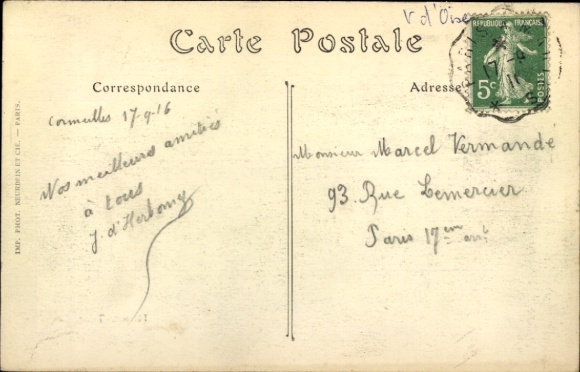 V d'Oise
Carte Postale
Correspondance
Adresse
RÉPUBLIQUE FRANÇAISE
5c
POSTES
17-4
11
Cormeilles 17-9-16
Nos meilleurs amitiés
à tous
J. d'Herbomez
Monsieur Marcel Vermande
93 Rue Lemercier
Paris 17em arrt
IMP. PHOT. NEURDEIN ET CIE. — PARIS.